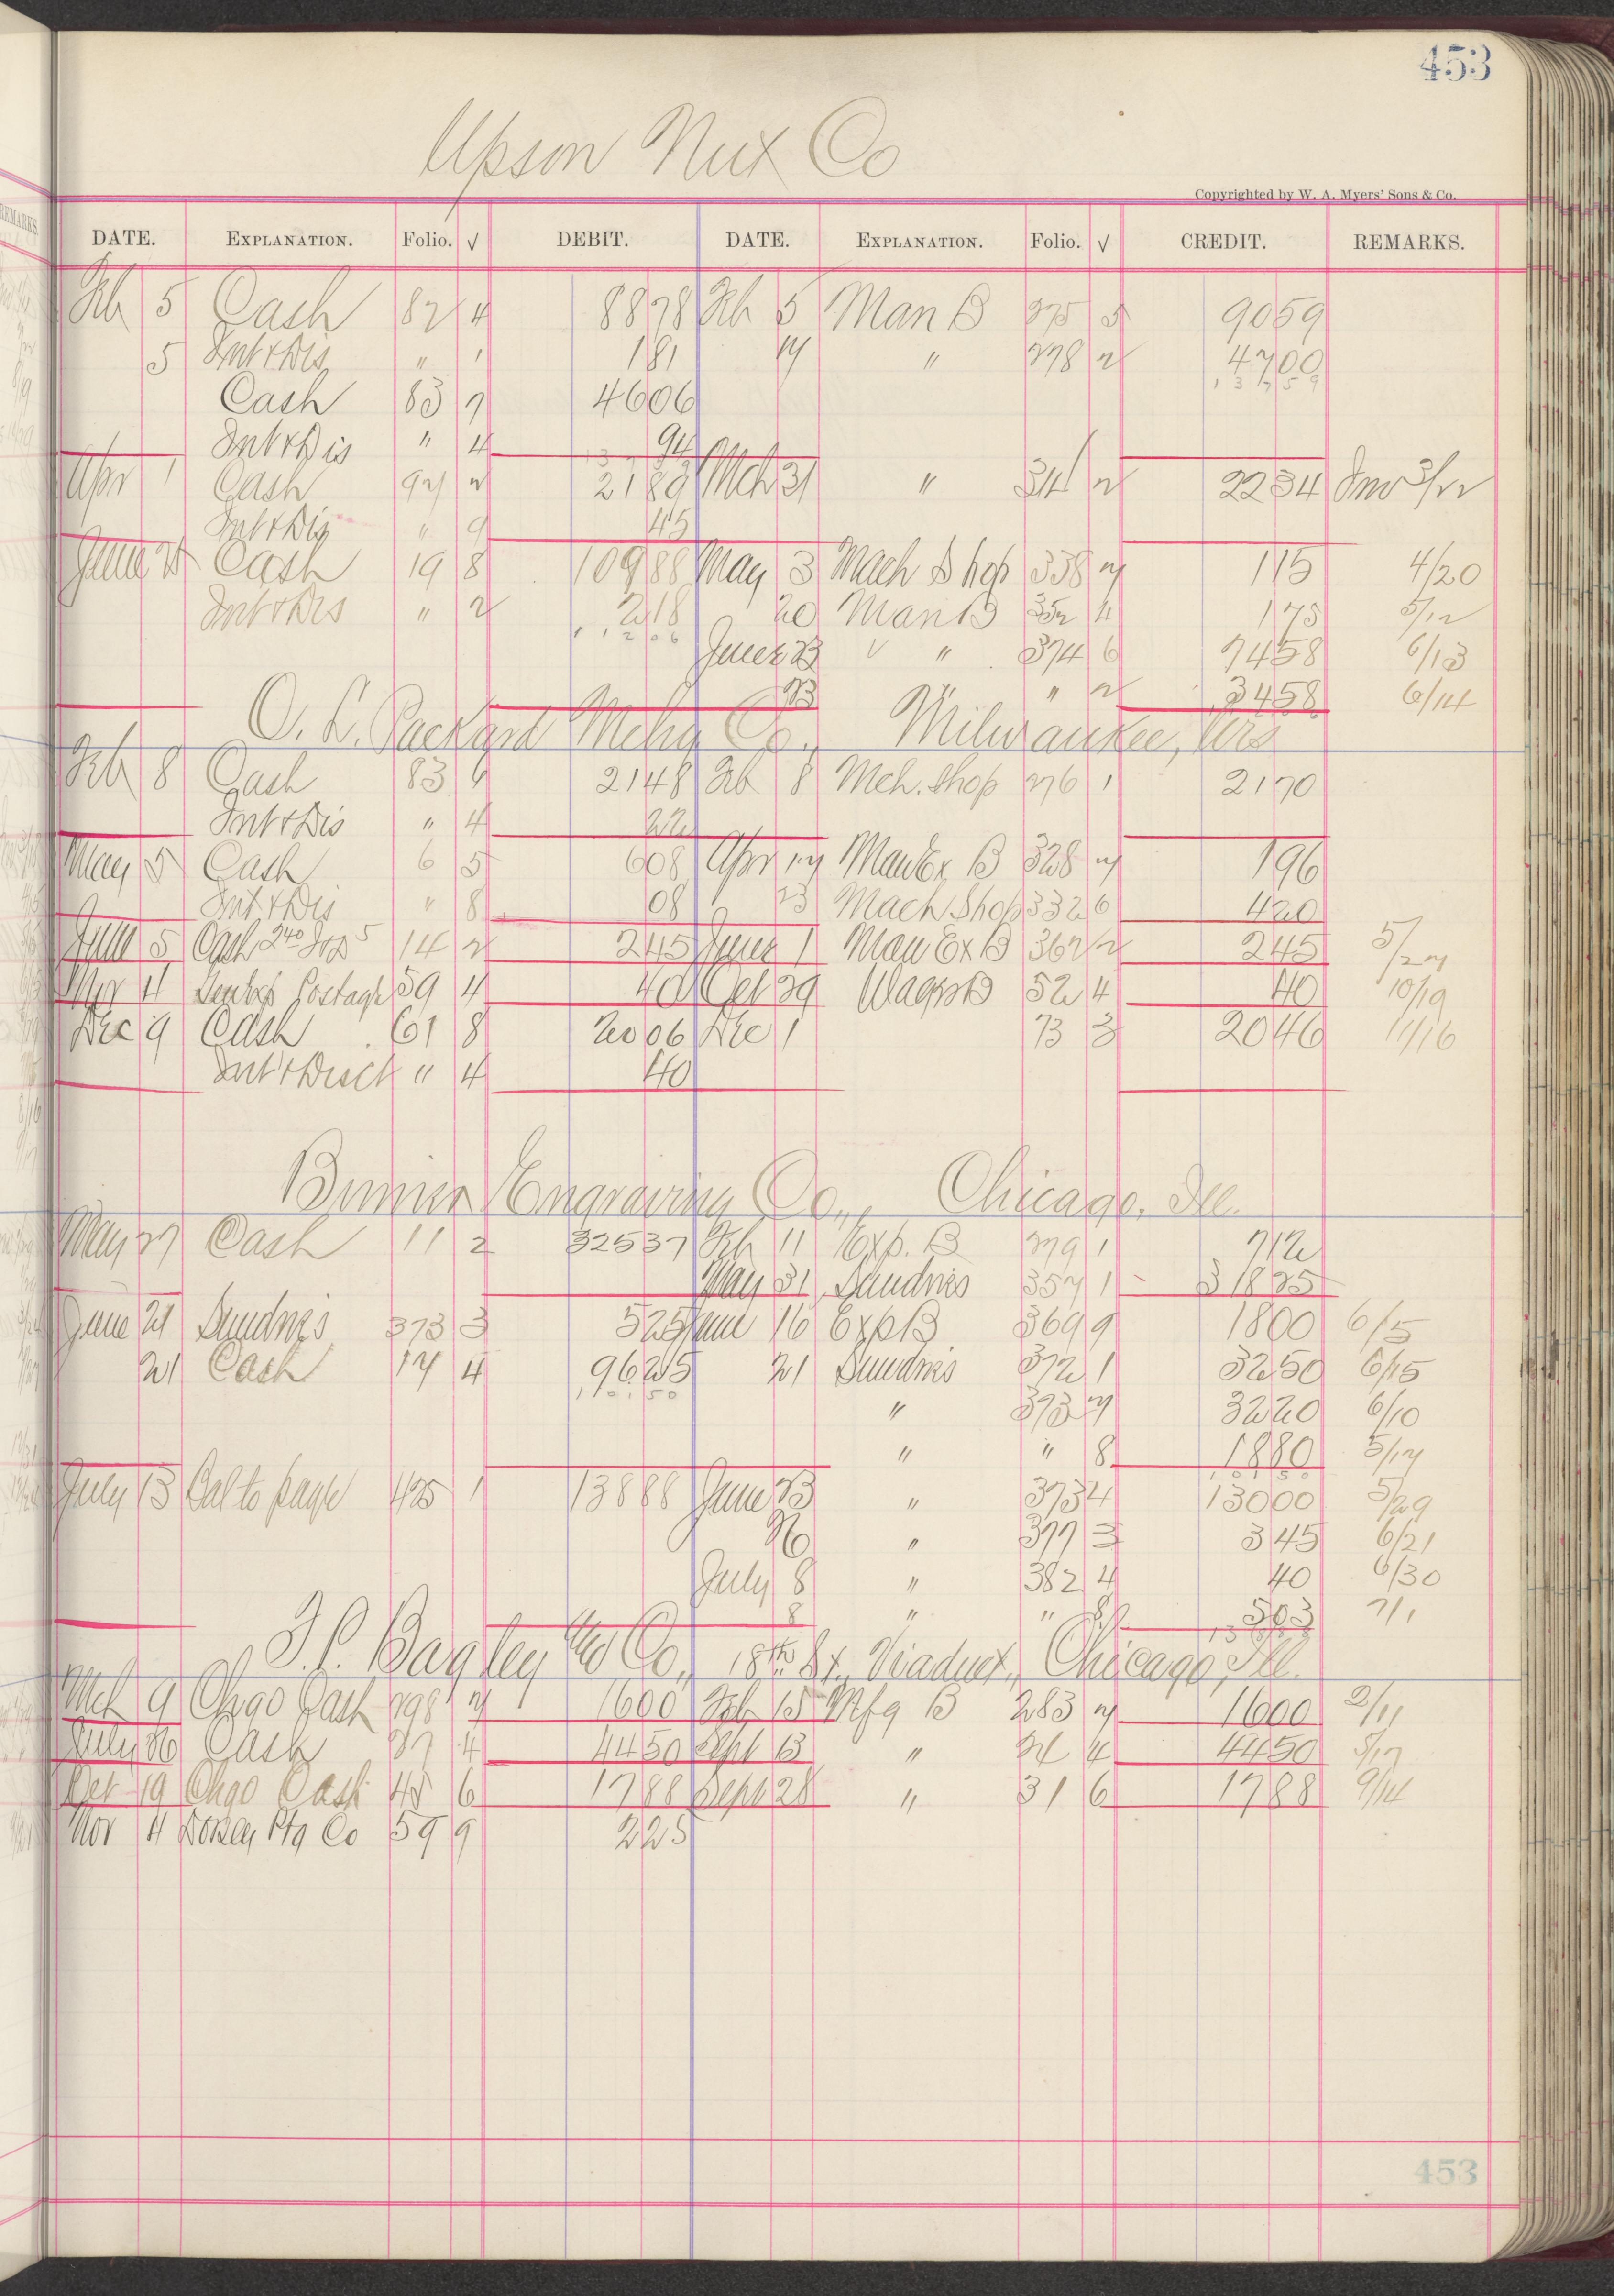 453
Upson Nut Co
Copyrighted by W. A. Myers' Sons & Co.
DATE. EXPLANATION. Folio. √ DEBIT. DATE. EXPLANATION. Folio. √ CREDIT. REMARKS.
Feb 5 Cash 82 4 8878 Feb 5 Man B 275 5 9059
5 Int & Dis " 1 181 14 " 278 2 4700
13759
Cash 83 7 4606
Int & Dis " 4 94
Apr 1 Cash 94 2 2189 Mch 31 " 314 2 2234 Inv 3/22
Int & Dis " 9 45
June 25 Cash 19 8 10988 May 3 Mach Shop 338 7 115 4/20
Int & Dis " 2 218 20 Man B 352 4 175 5/12
11206
June 23 " " 374 6 7458 6/13
23 " " 2 3458 6/14
O. L. Packard Mchy Co., Milwaukee, Wis
Feb 8 Cash 83 6 2148 Feb 8 Mch. Shop 276 1 2170
Int & Dis " 4 22
May 5 Cash 6 5 608 Apr 17 Man Ex B 328 7 196
Int & Dis " 8 08 23 Mach Shop 332 6 420
June 5 Cash 240 Dis 5 14 2 245 June 1 Man Ex B 362 2 245 5/27
Nov 11 Postage 59 4 40 Oct 29 Wages B 52 4 40 10/19
Dec 9 Cash 61 8 2006 Dec 1 73 3 2046 11/16
Int & Disct " 4 40
Binner Engraving Co., Chicago, Ill.
May 27 Cash 11 2 32537 Feb 11 Exp. B 279 1 712
May 31 Sundries 357 1 31825
June 21 Sundries 373 3 525 June 16 Exp B 369 9 1800 6/5
21 Cash 17 4 9625 21 Sundries 372 1 3250 6/15
10150
" 373 7 3220 6/10
" " 8 1880 5/17
10150
July 13 Bal to page 425 1 13888 June 23 " 373 4 13000 5/29
26 " 377 3 345 6/21
July 8 " 382 4 40 6/30
8 " " 8 503 7/1
13888
F. P. Bagley & Co., 18th St. Viaduct, Chicago, Ill.
Mch 9 Chgo Cash 298 7 1600 Feb 15 Mfg B 283 7 1600 2/11
July 26 Cash 27 4 4450 Sept 13 " 24 4 4450 5/17
Oct 19 Chgo Cash 45 6 1788 Sept 28 " 31 6 1788 9/14
Nov 11 Dorsey Ptg Co 59 9 225
453